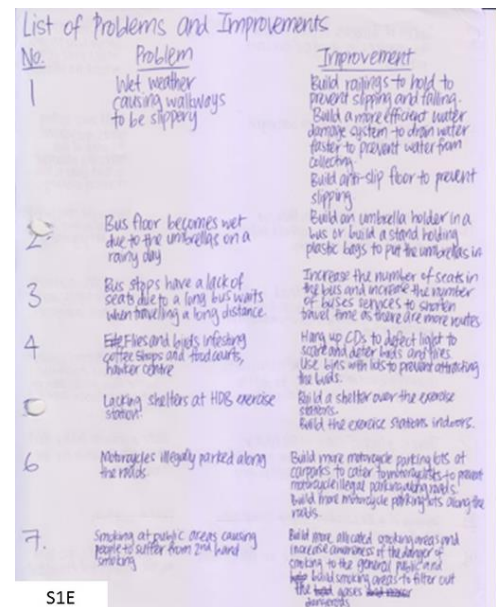 List of Problems and Improvements
No. Problem Improvement
1 Wet weather
causing walkways
to be slippery
Build railings to hold to
prevent slipping and falling.
Build a more efficient water
damage system to drain water
faster to prevent water from
collecting.
Build anti-slip floor to prevent
slipping
2. Bus floor becomes wet
due to the umbrellas on a
rainy day
Build an umbrella holder in a
bus or build a stand holding
plastic bags to put the umbrellas in
3 Bus stops have a lack of
seats due to a long bus waits
when travelling a long distance.
Increase the number of seats in
the bus and increase the number
of buses services to shorten
travel time as there are more routes
4 Flies and birds infesting
coffee shops and food courts,
hawker centre
Hang up CDs to deflect light to
scare and deter birds and flies.
Use bins with lids to prevent attracting
the birds.
Lacking shelters at HDB exercise
station
Build a shelter over the exercise
stations.
Build the exercise stations indoors.
6 Motorcycles illegally parked along
the roads.
Build more motorcycle parking lots at
carparks to cater to motorcyclists to prevent
motorcycle illegal parking along roads.
Build more motorcycle parking lots along the
roads.
7. Smoking at public areas causing
people to suffer from 2nd hand
smoking
Build more allocated smoking areas and
increase awareness of the danger of
smoking to the general public and
build smoking areas to filter out
the gases
dangerous
S1E